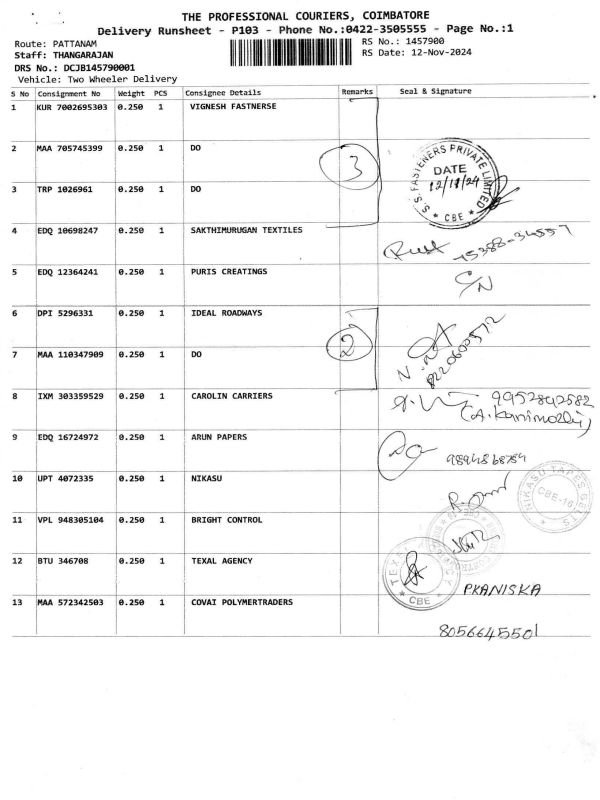 THE PROFESSIONAL COURIERS, COIMBATORE
Delivery Runsheet - P103 - Phone No.:0422-3505555 - Page No.:1
Route: PATTANAM
RS No.: 1457900
Staff: THANGARAJAN
RS Date: 12-Nov-2024
DRS No.: DCJB145790001
Vehicle: Two Wheeler Delivery
S No Consignment No Weight PCS Consignee Details Remarks Seal & Signature
1 KUR 7002695303 0.250 1 VIGNESH FASTNERSE
2 MAA 705745399 0.250 1 DO
3
S.S. FASTENERS PRIVATE LIMITED
DATE
12/11/24
* CBE *
3 TRP 1026961 0.250 1 DO
4 EDQ 10698247 0.250 1 SAKTHIMURUGAN TEXTILES
75388-34557
5 EDQ 12364241 0.250 1 PURIS CREATINGS
C/N
6 DPI 5296331 0.250 1 IDEAL ROADWAYS
2
8220600572
7 MAA 110347909 0.250 1 DO
8 IXM 303359529 0.250 1 CAROLIN CARRIERS
9952842582
(A. Kanimozhi)
9 EDQ 16724972 0.250 1 ARUN PAPERS
9894868754
10 UPT 4072335 0.250 1 NIKASU
NIKASU TAPES
CBE-16
11 VPL 948305104 0.250 1 BRIGHT CONTROL
12 BTU 346708 0.250 1 TEXAL AGENCY
* CBE *
PKANISKA
13 MAA 572342503 0.250 1 COVAI POLYMERTRADERS
8056645501